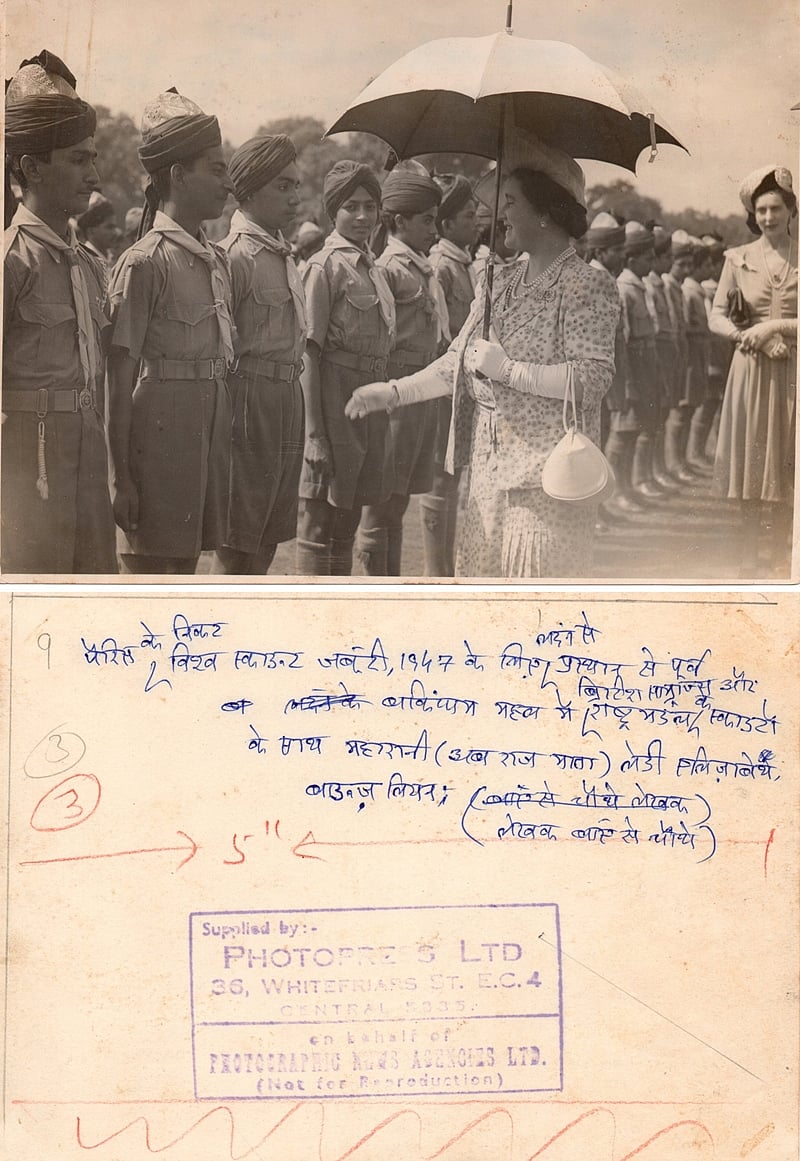 9 पैरिस के निकट
विश्व स्काउट जंबूरी, 1947 के लिए लंदन से प्रस्थान से पूर्व
बकिंघम महल में ब्रिटिश साम्राज्य और राष्ट्रमंडल के स्काउटों
के साथ महारानी (अब राज माता) लेडी एलिज़ाबेथ
बाउज़ लियन; (बाएँ से चौथे लेखक)
(लेखक बाएँ से चौथे)
3
3
5"
Supplied by:-
PHOTOPRESS LTD
36, WHITEFRIARS ST. E.C.4
CENTRAL
on behalf of
PHOTOGRAPHIC NEWS AGENCIES LTD.
(Not for Reproduction)